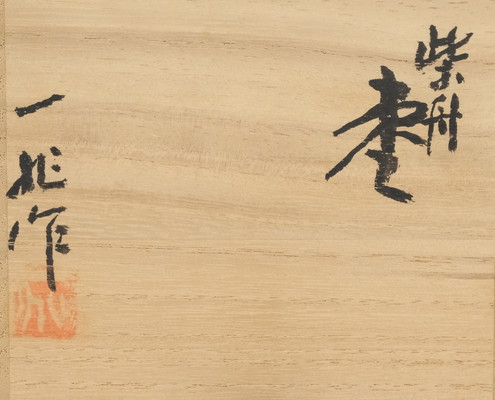 柴舟
棗
一兆作